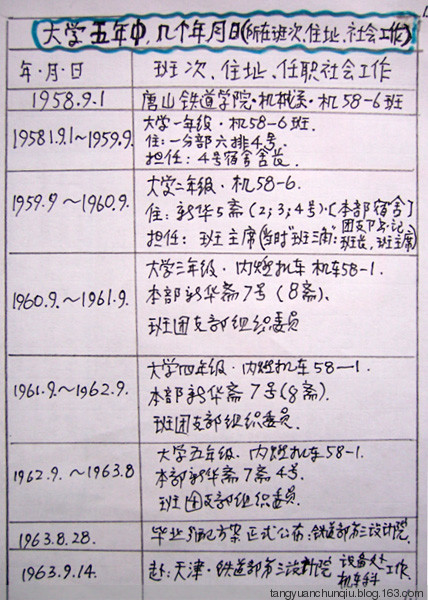 大学五年中,几个年月日(所在班次、住址、社会工作)
年·月·日
班次、住址、任职社会工作
1958.9.1
唐山铁道学院·机械系·机58-6班
19581.9.1~1959.9.
大学一年级·机58-6班.
住:一分部六排4号.
担任:4号宿舍舍长.
1959.9~1960.9.
大学二年级·机58-6.
住:新华5斋(2;3;4号)·[本部宿舍]
担任:班主席(当时"班三角":团支部书记,班长,班主席)
1960.9.~1961.9.
大学三年级·内燃机车 机车58-1.
本部新华斋7号(8斋).
班团支部组织委员
1961.9.~1962.9.
大学四年级·内燃机车58-1.
本部新华斋7号(8斋).
班团支部组织委员.
1962.9.~1963.8
大学五年级·内燃机车58-1.
本部新华斋7斋4号.
班团支部组织委员.
1963.8.28.
毕业分配方案正式公布:铁道部第三设计院.
1963.9.14.
赴:天津·铁道部第三设计院 设备处机车科工作.
tangyuanchunqiu.blog.163.com